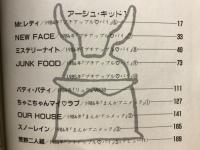 アーシュ・キッド
Mr.レディ/1984年「プチアップル♡パイ⑥」 17
NEW FACE/1984年「プチアップル♡パイ⑦」 33
ミステリーナイト/1984年「プチアップル♡パイ⑧」 49
JUNK FOOD/1985年「プチアップル♡パイ⑨」 73
パティ・パティ/1985年 111
ちゃこちゃんマイ♡ラブ/1984年「まんがアニメック①」 127
OUR HOUSE/1984年「まんがアニメック②」 141
スノーレイン/1985年「まんがアニメック③」 165
荒野二人組 189